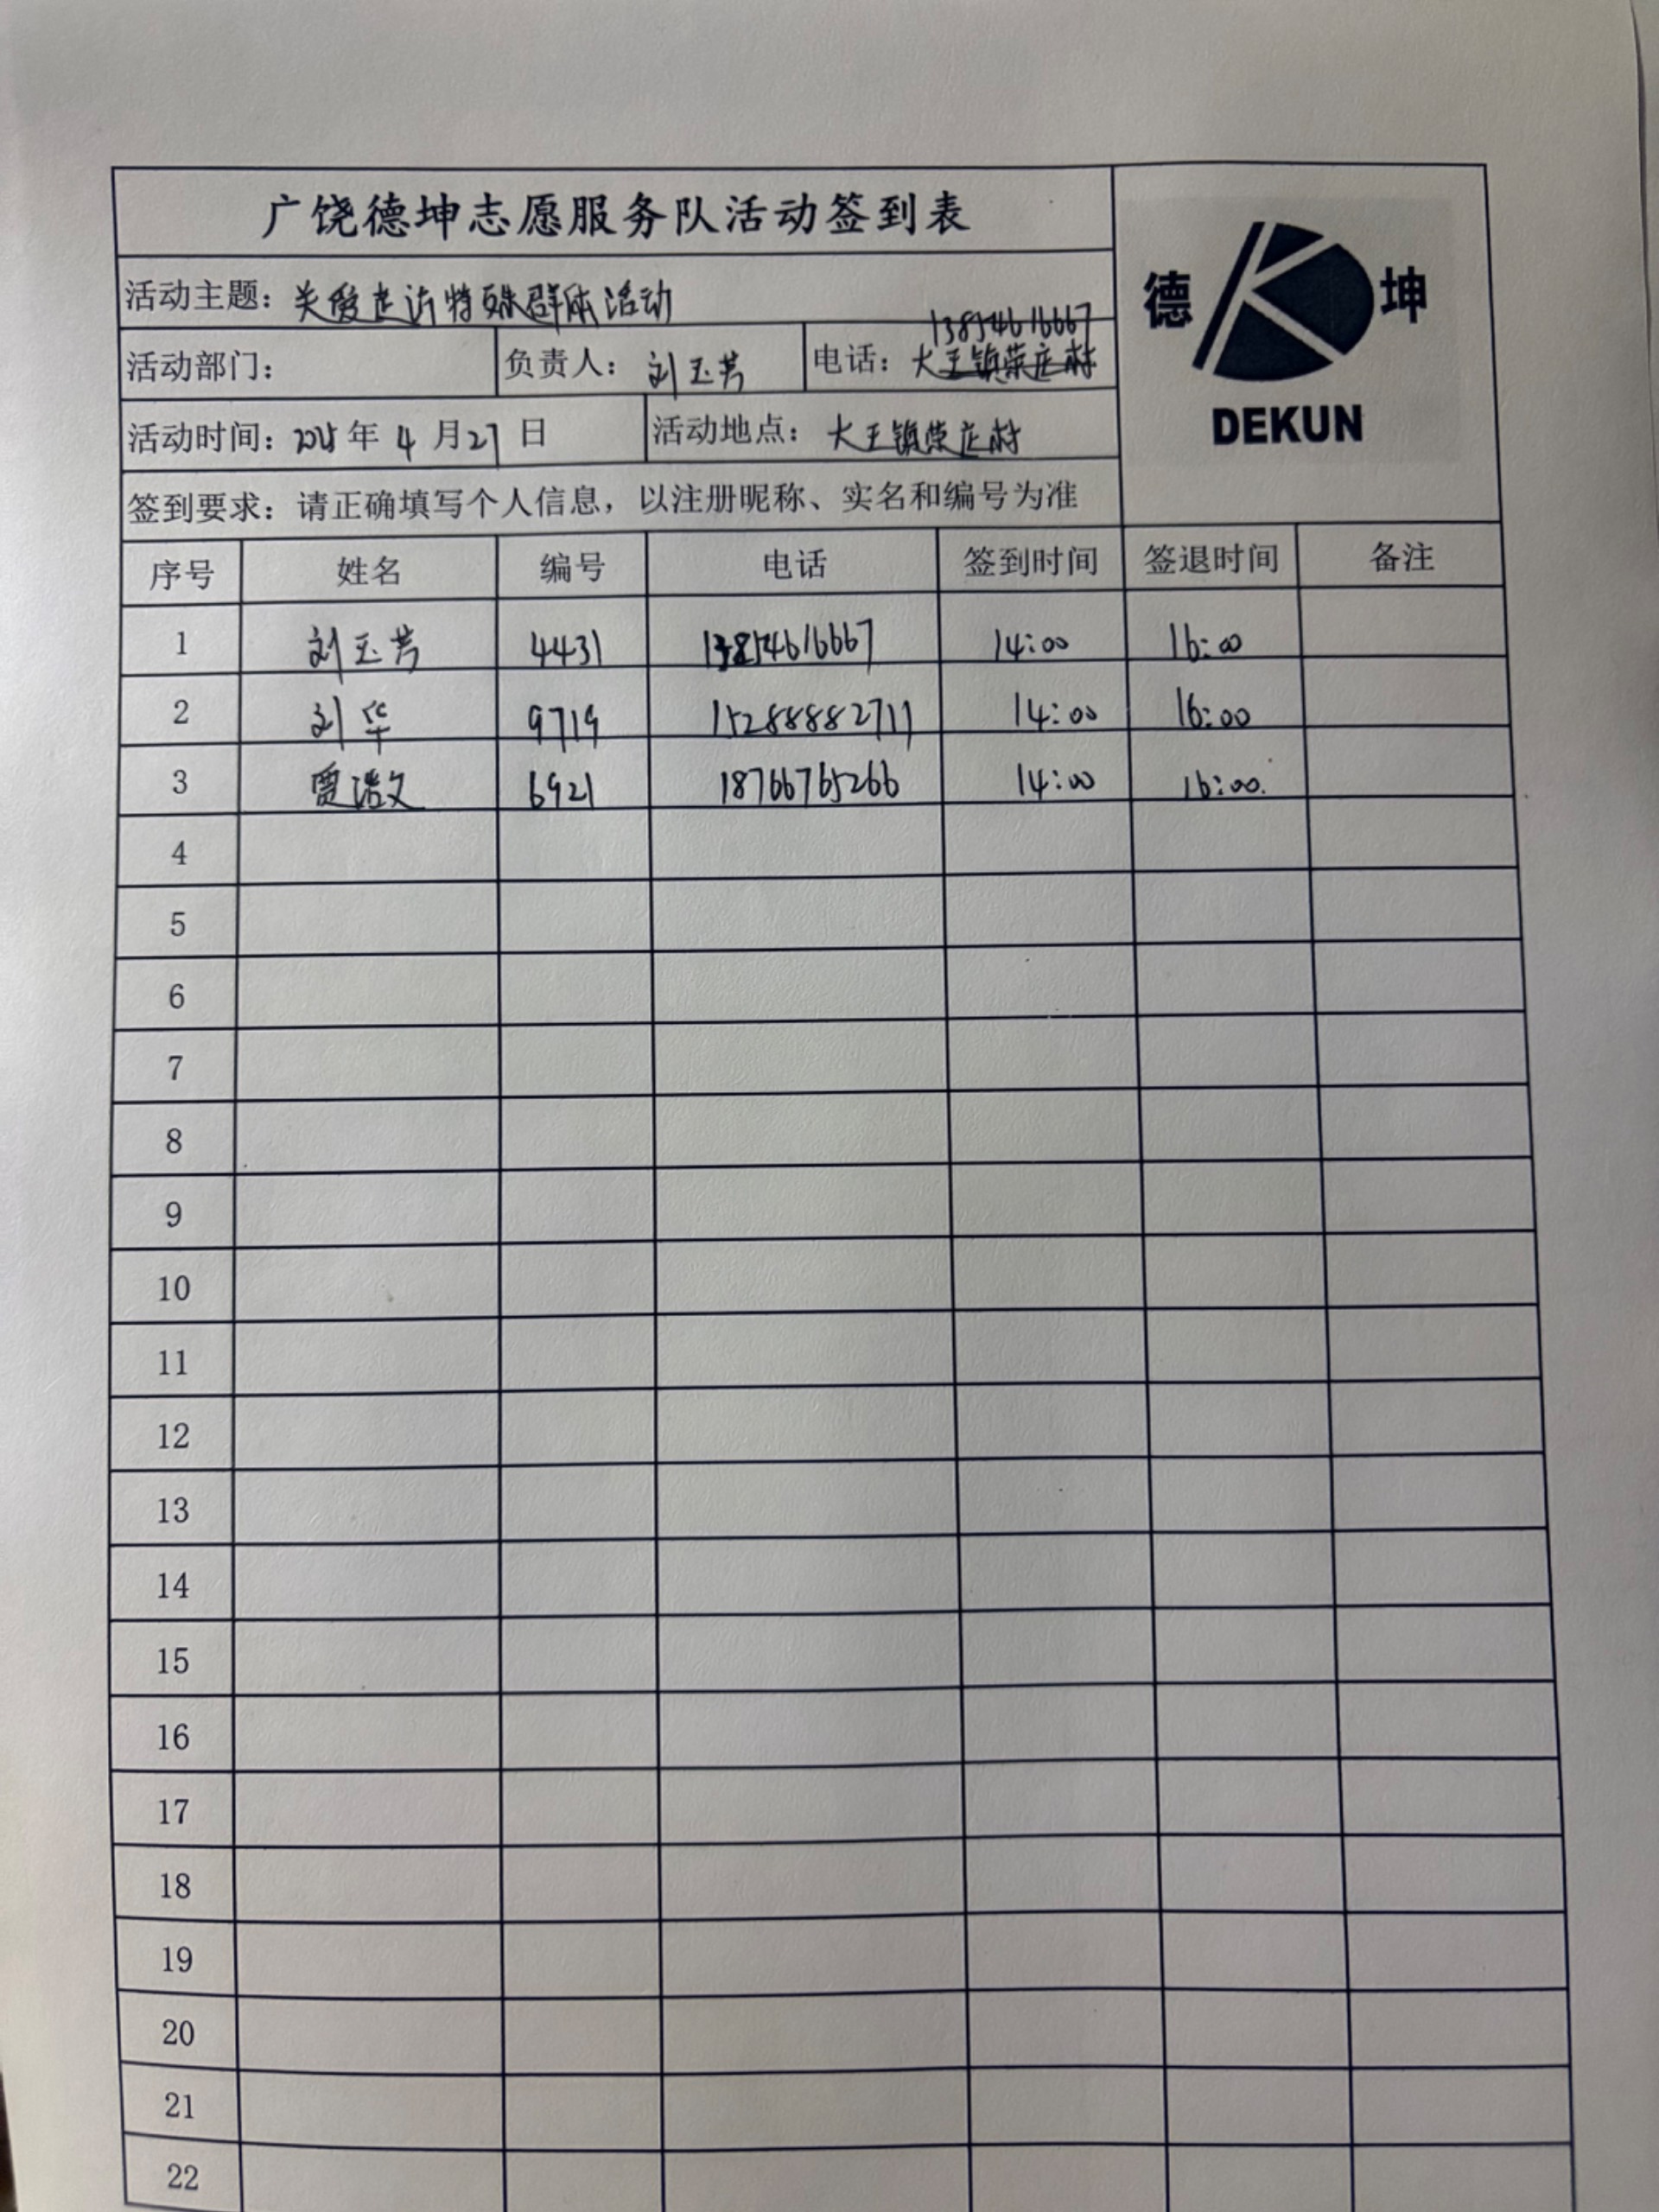 广饶德坤志愿服务队活动签到表
德 坤
DEKUN
活动主题：关爱走访特殊群体活动
13854616667
活动部门： 负责人：刘玉芳 电话：大王镇荣庄村
活动时间：2025年4月27日 活动地点：大王镇荣庄村
签到要求：请正确填写个人信息，以注册昵称、实名和编号为准
序号 姓名 编号 电话 签到时间 签退时间 备注
1 刘玉芳 4431 13854616667 14:00 16:00
2 刘华 9719 15288882711 14:00 16:00
3 贾浩文 6921 18766765266 14:00 16:00.
4
5
6
7
8
9
10
11
12
13
14
15
16
17
18
19
20
21
22